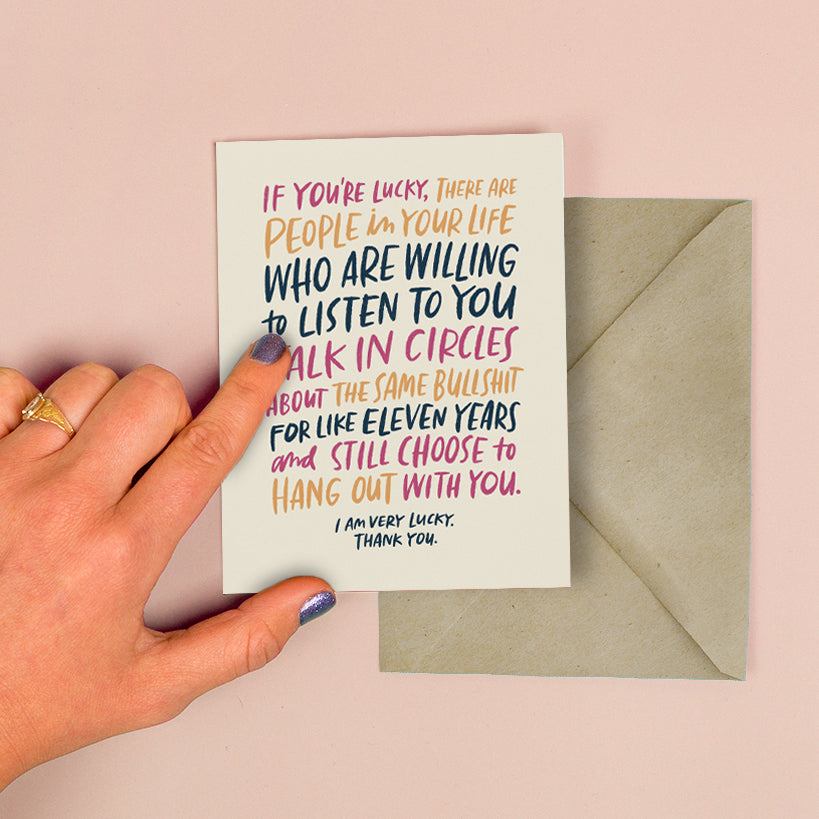 IF YOU'RE LUCKY, THERE ARE
PEOPLE in YOUR LIFE
WHO ARE WILLING
to LISTEN TO YOU
TALK IN CIRCLES
ABOUT THE SAME BULLSHIT
FOR LIKE ELEVEN YEARS
and STILL CHOOSE to
HANG OUT WITH YOU.
I AM VERY LUCKY.
THANK YOU.